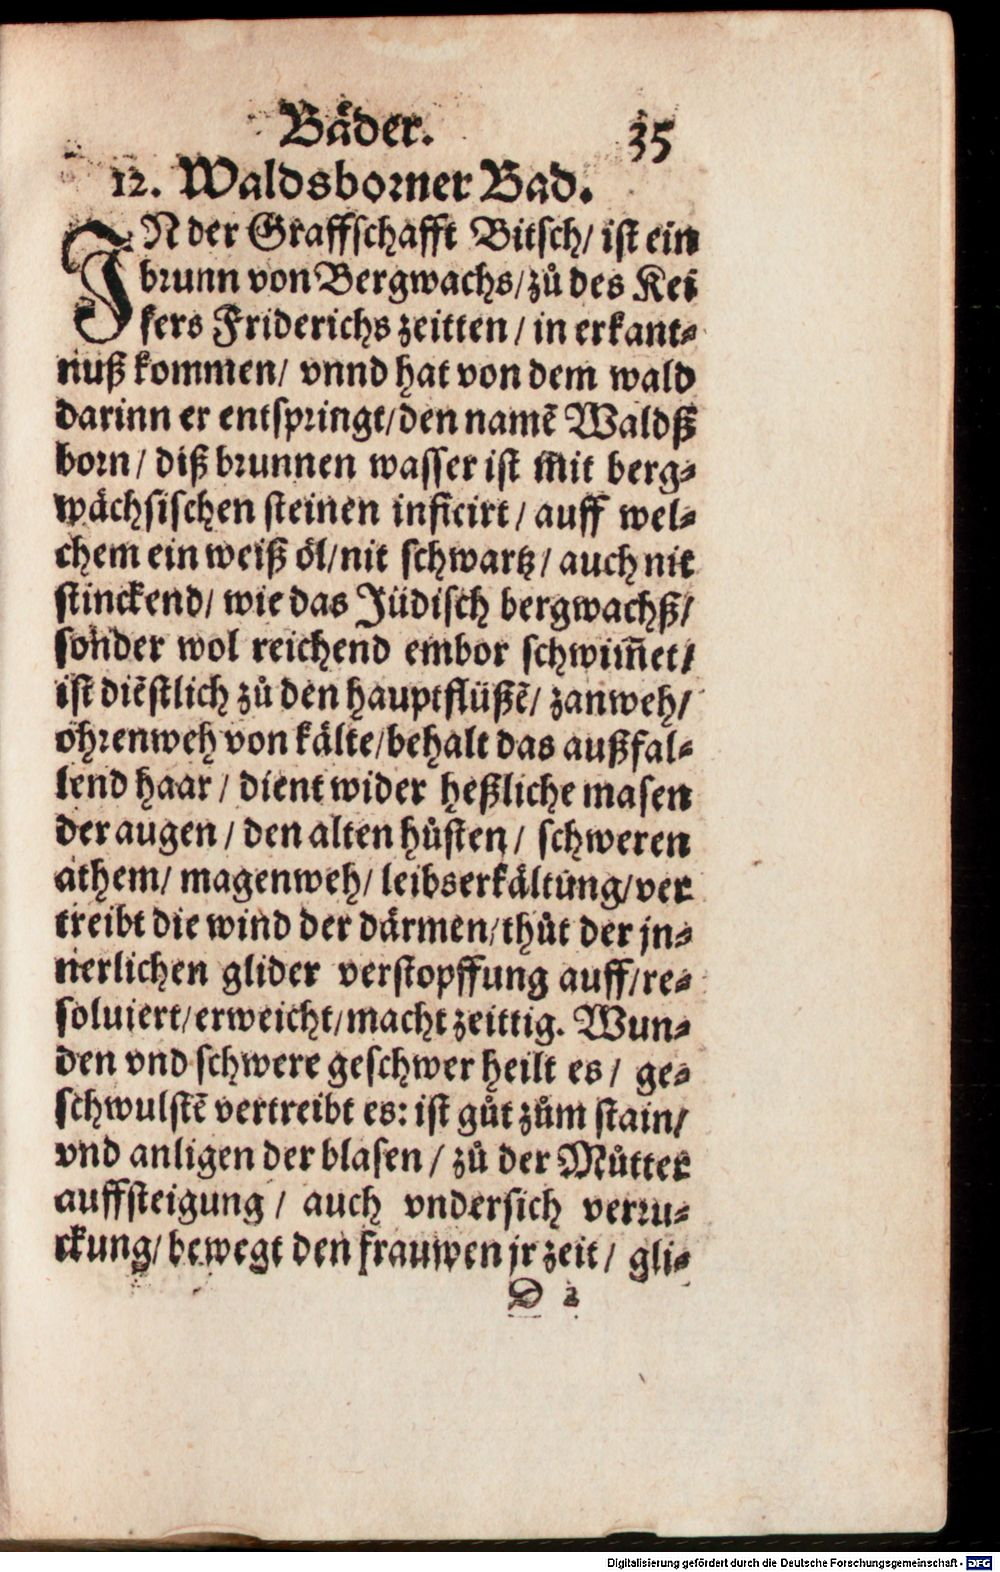 Bäder. 35
12. Waldsborner Bad.
IN der Graffschafft Bitsch/ ist ein
brunn von Bergwachs/ zů des Kei
sers Friderichs zeitten / in erkant-
nuß kommen/ vnnd hat von dem wald
darinn er entspringt/ den namẽ Waldß
born/ diß brunnen wasser ist mit berg-
wächsischen steinen inficirt / auff wel-
chem ein weiß öl/ nit schwartz / auch nit
stinckend/ wie das Jüdisch bergwachß/
sonder wol reichend embor schwim̃et/
ist diẽstlich zů den hauptflüßẽ/ zanweh/
ohrenweh von kälte/ behalt das außfal-
lend haar / dient wider heßliche masen
der augen / den alten hůsten / schweren
athem/ magenweh/ leibserkältung/ ver
treibt die wind der därmen/ thůt der jn-
nerlichen glider verstopffung auff/ re-
soluiert/ erweicht/ macht zeittig. Wun-
den vnd schwere geschwer heilt es / ge-
schwulstẽ vertreibt es: ist gůt zům stain/
vnd anligen der blasen / zů der Můtter
auffsteigung / auch vndersich verru-
ckung/ bewegt den frauwen jr zeit / gli-
D 2
Digitalisierung gefördert durch die Deutsche Forschungsgemeinschaft - DFG